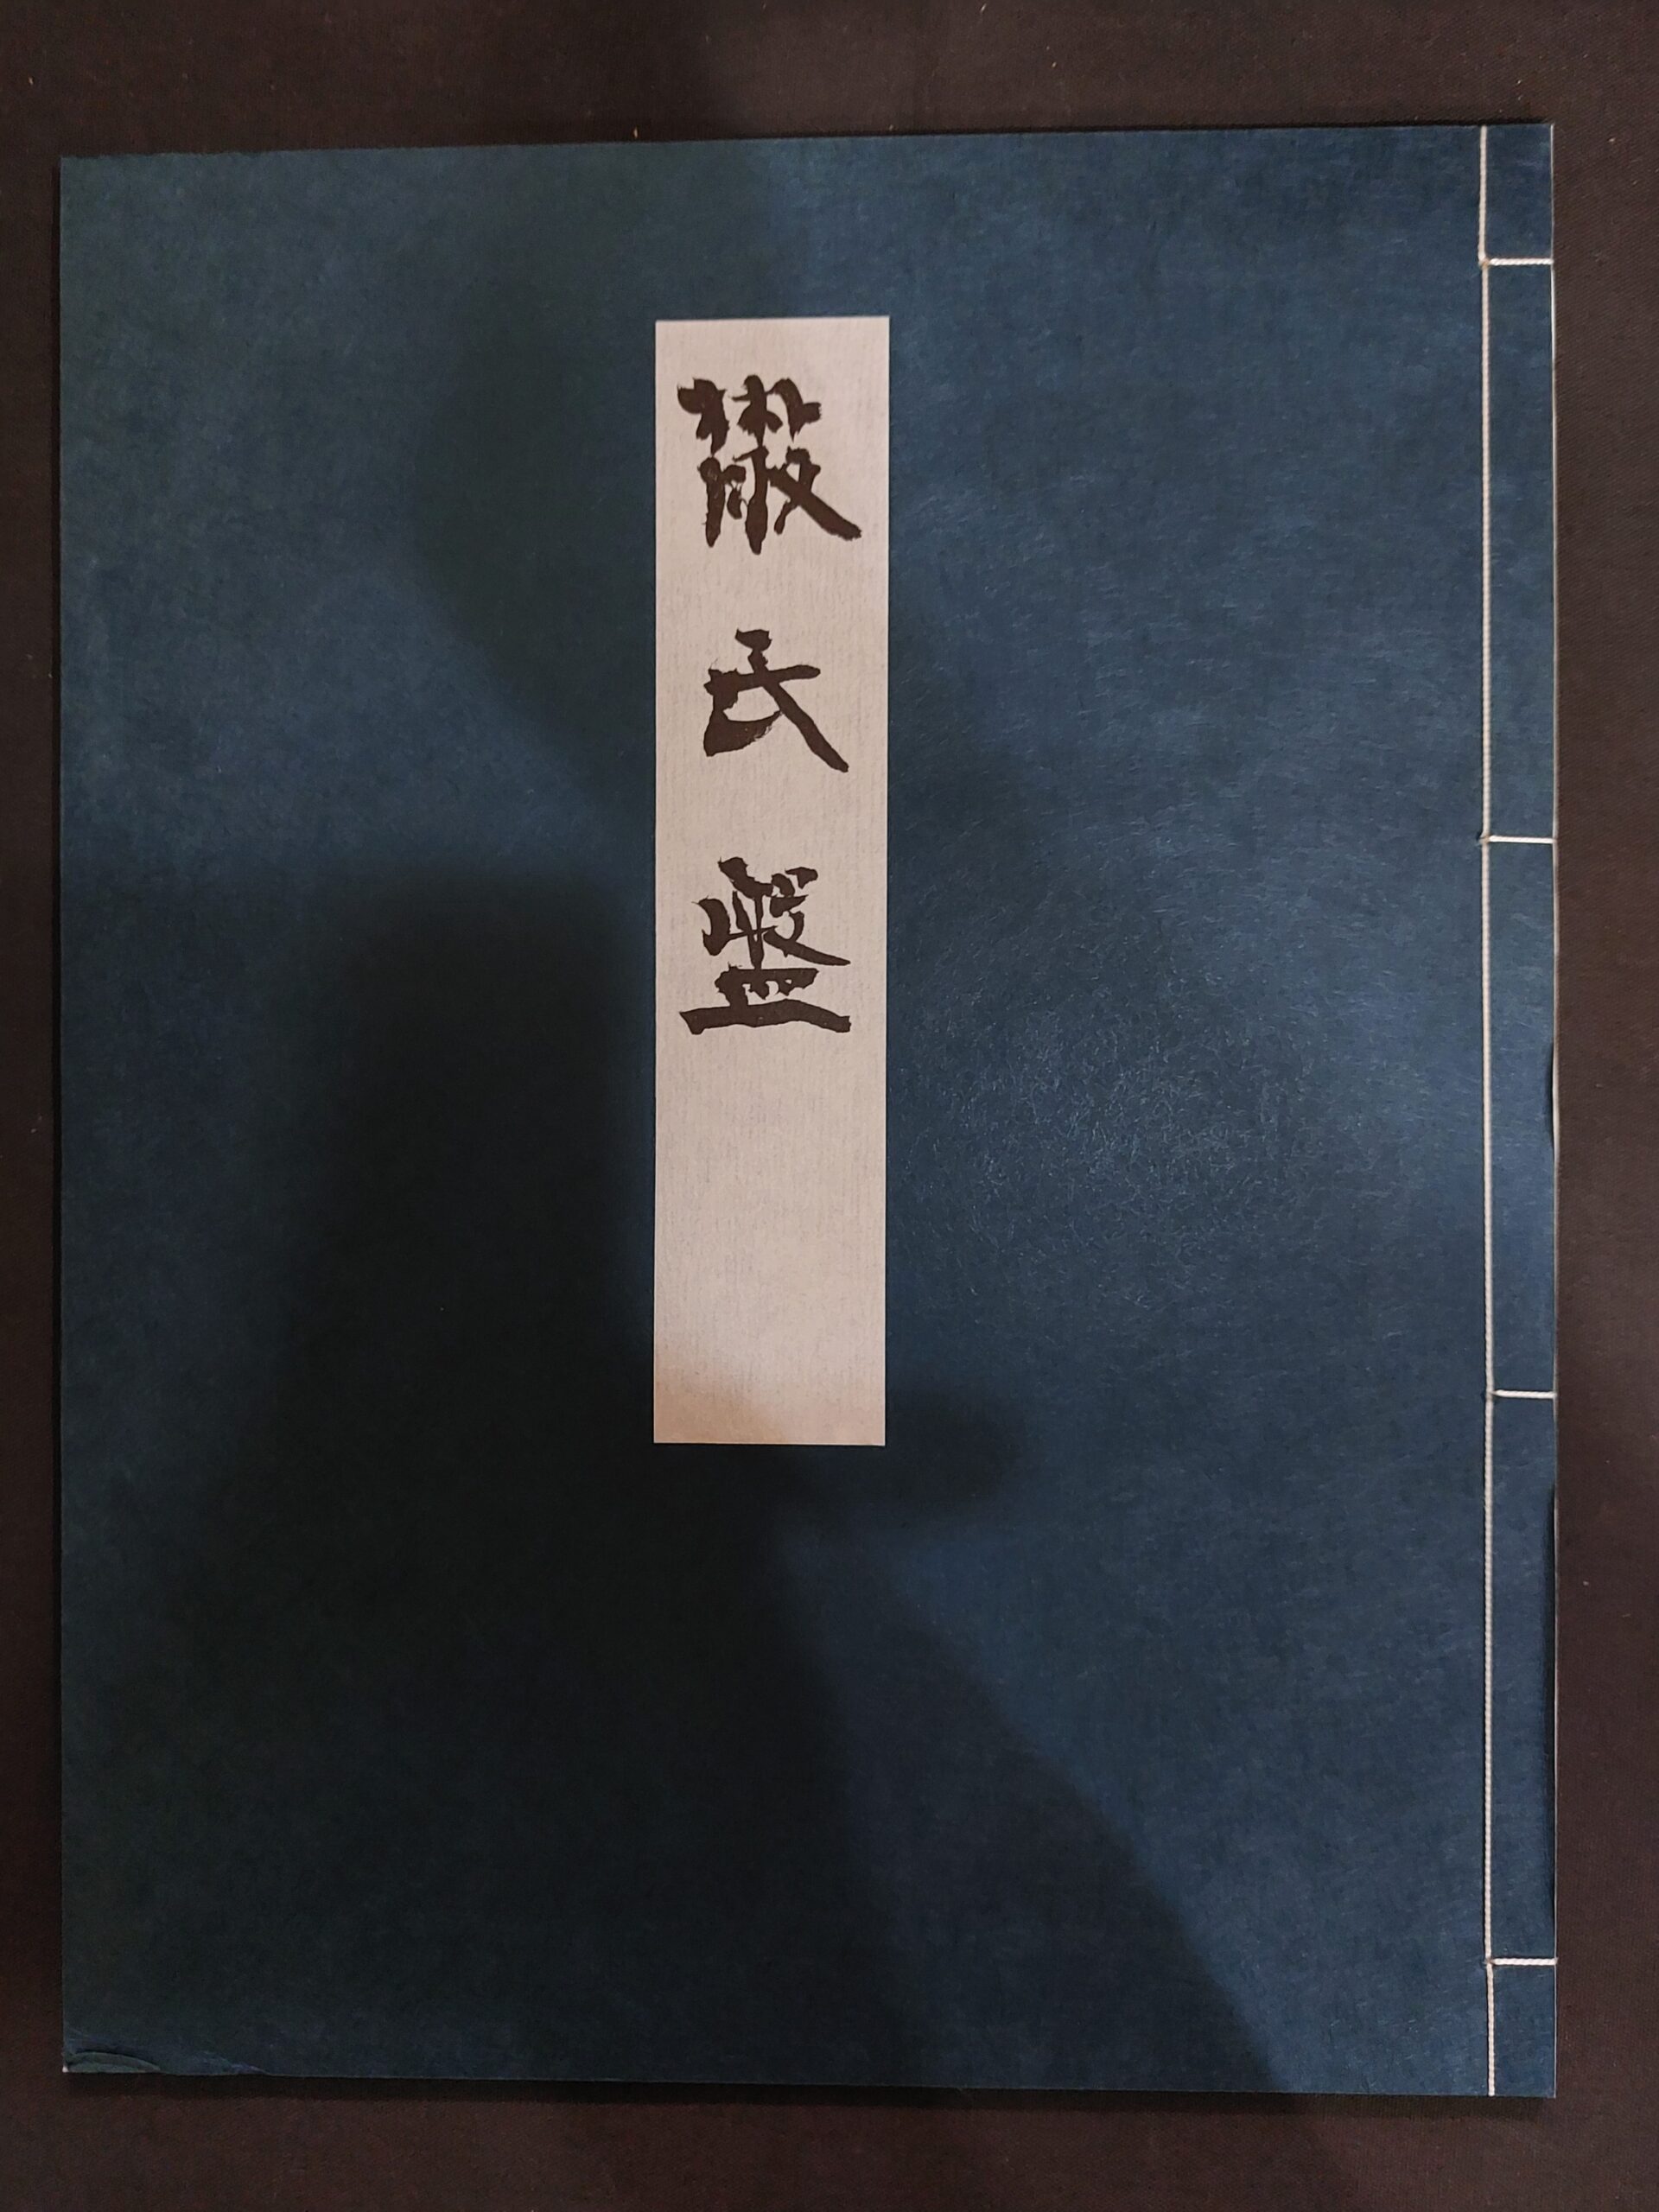 散氏盤